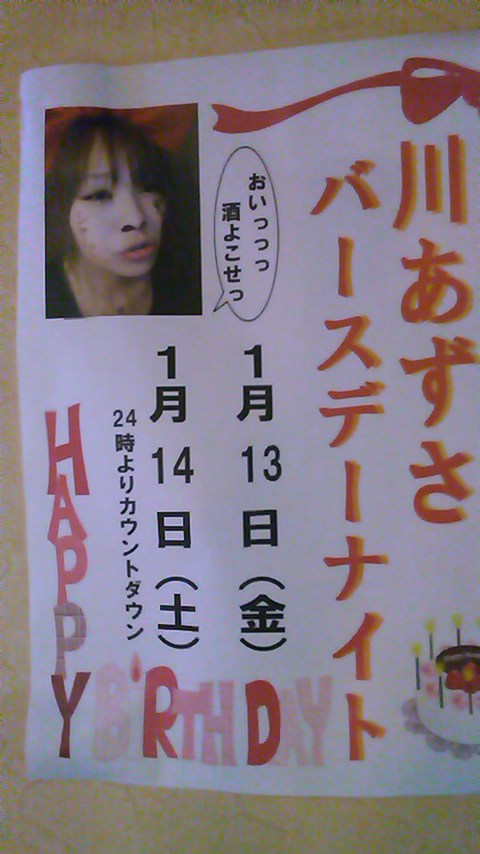 川あずさ
バースデーナイト
おいっっっ
酒よこせっ
1月13日(金)
1月14日(土)
24時よりカウントダウン
HAPPY
BIRTHDAY